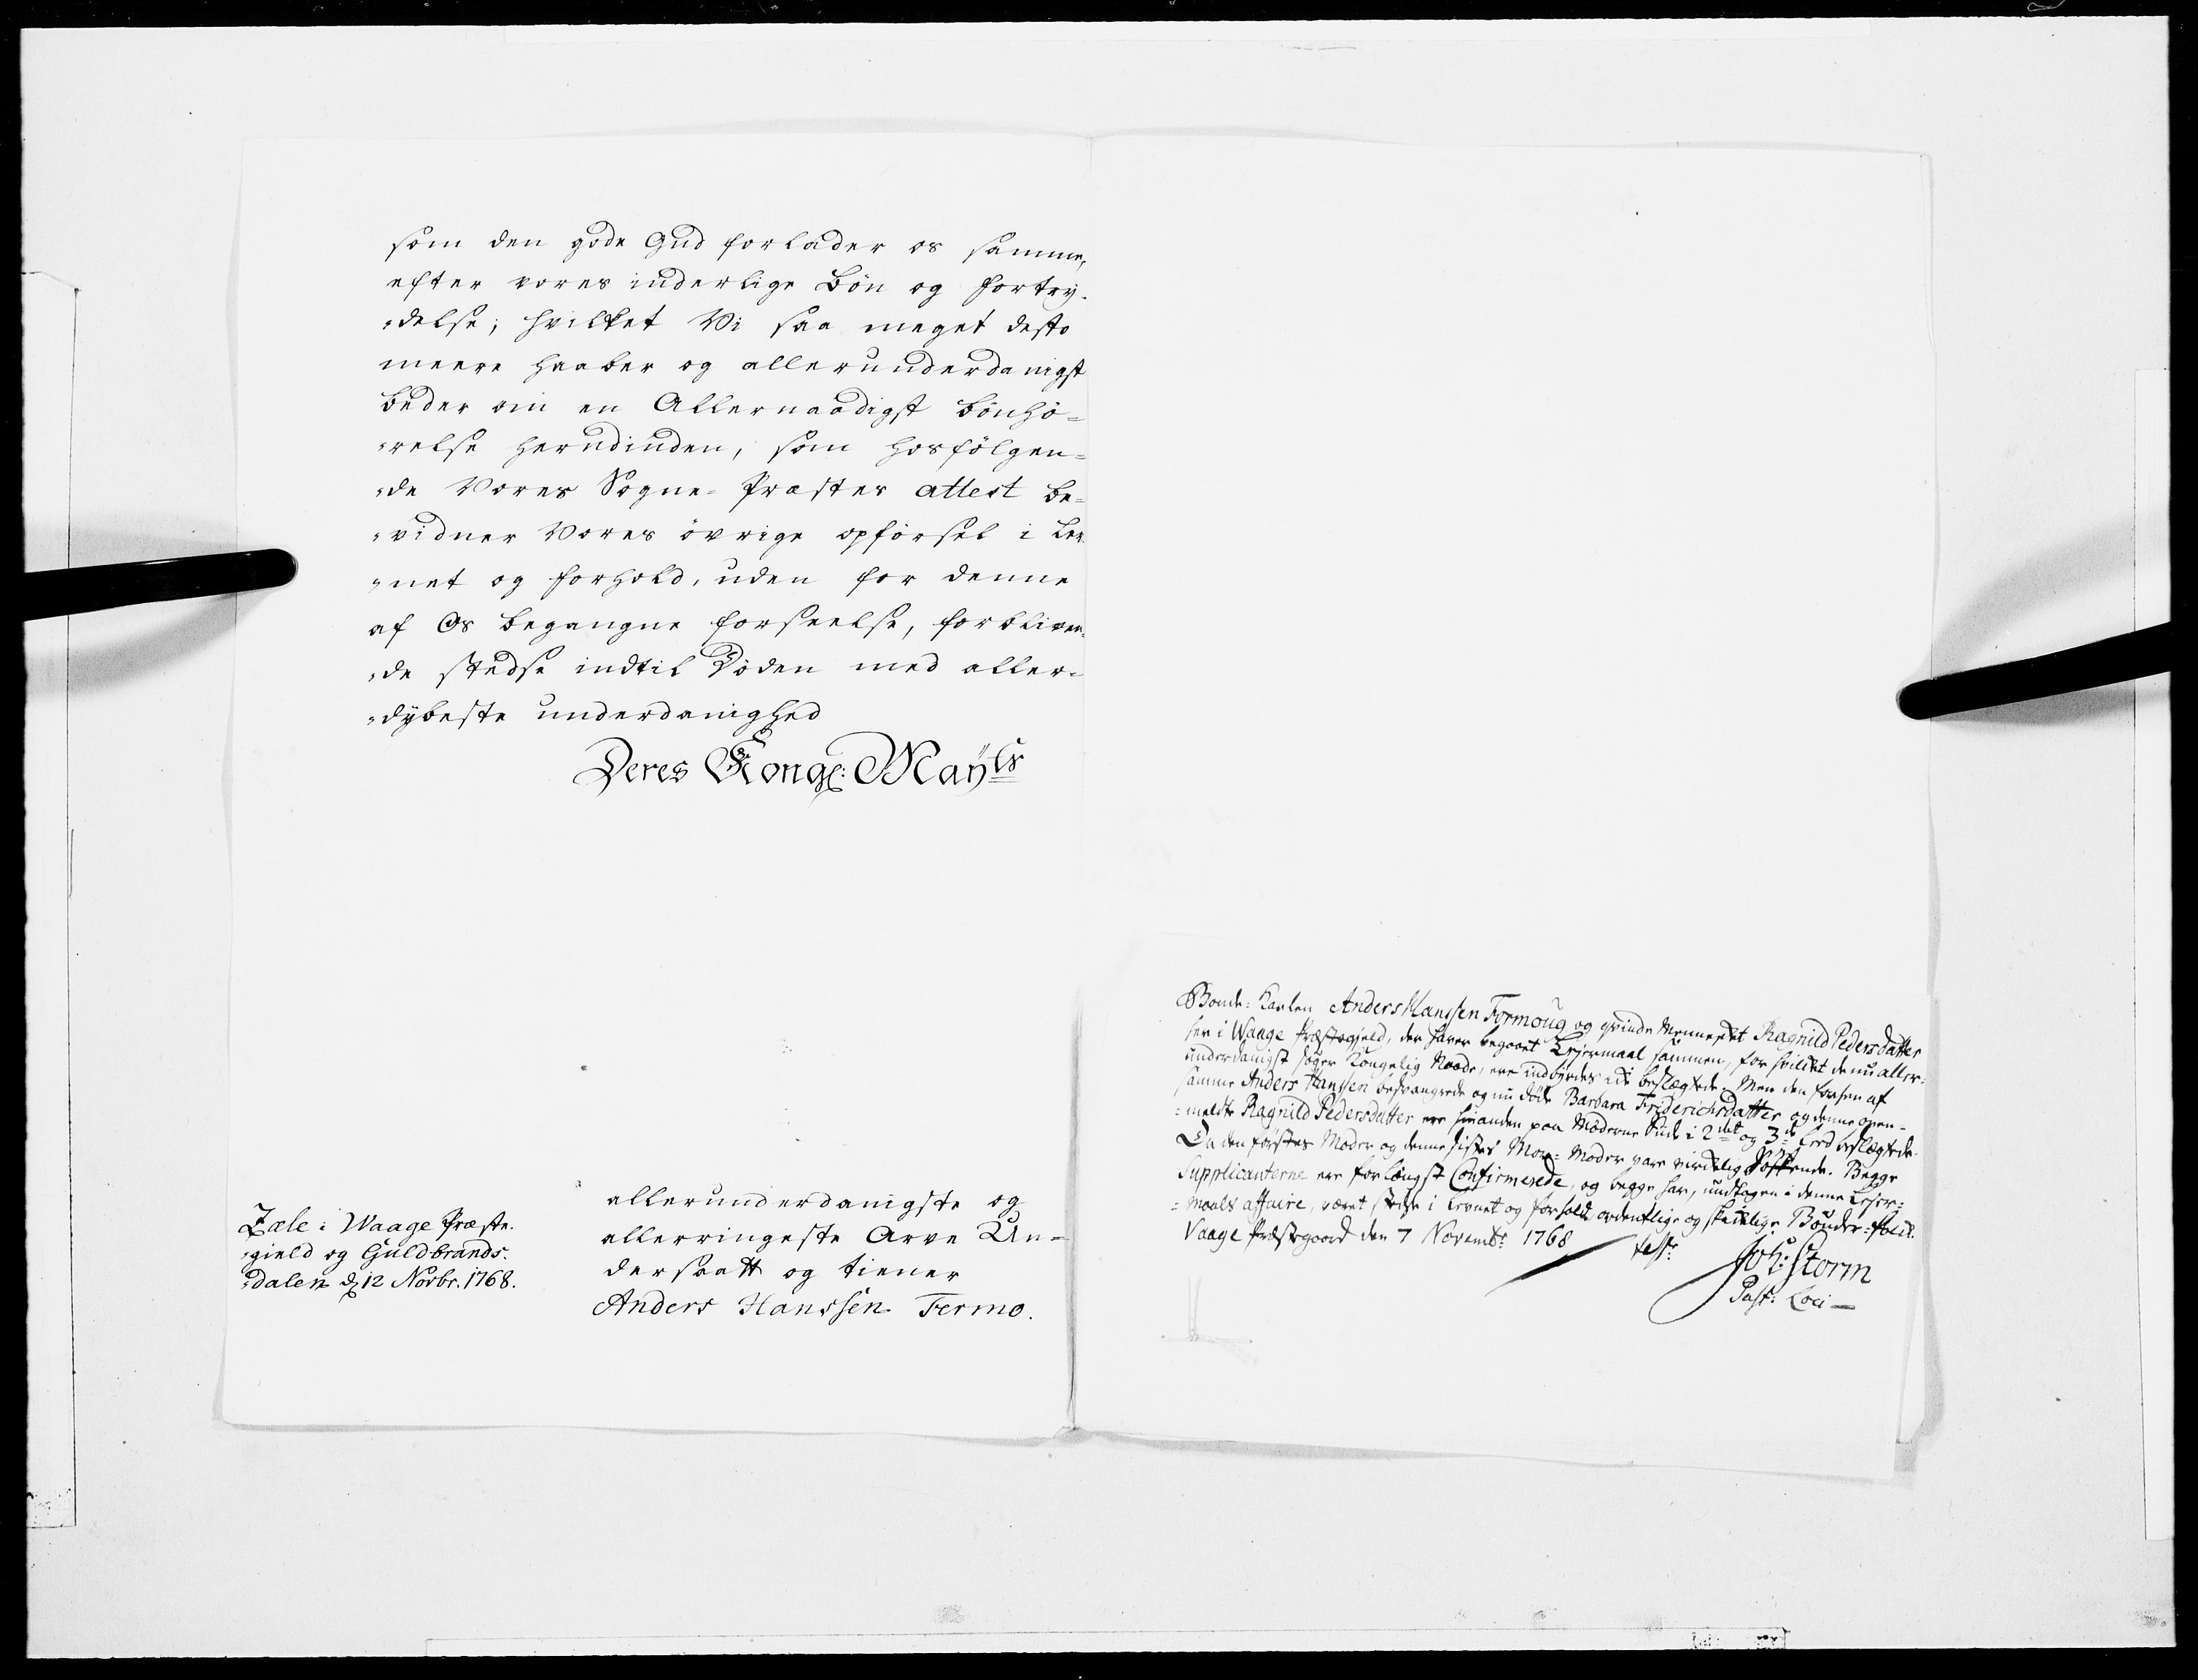 som den gode Gud forlader os samme,
efter vores inderlige Bön og fortry-
-delse; hvilket Vi saa meget desto
meere haaber og allerunderdanigst
beder om en Allernaadigst bönhö-
-relse herudinden, som hosfölgen-
-de Vores Sogne-Præstes attest be-
-vidner Vores övrige opförsel i Lev-
-net og forhold, uden for denne
af Os begangne forseelse, forbliven-
-de stedse indtil Döden med aller-
-dybeste underdanighed
Deres Kongl: Mayts
allerunderdanigste og
allerringeste Arve Un-
dersaatt og tiener
Anders Hanssen Formo.
Zæle i Waage Præste-
-gield og Guldbrands-
-dalen d 12 Novbr. 1768.
Bonde-Karlen Anders Hanssen Formoug og qvinde Mennesket Ragnild Pedersdatter
her i Waage Præstegjeld, der haver begaaet Lejermaal sammen, for hvilket de nu aller-
underdanigst söger Kongelig Naade, ere indbyrdes ikke beslægtede. Men den forhen af
samme Anders Hanssen besvangrede og nu döde Barbara Friderichsdatter og denne oven-
-meldte Ragnild Pedersdatter ere hinanden paa Möderne Side i 2det og 3de Leed beslægtede.
Da den förstes Moder og denne sistes Mor-Moder vare virkelig Söskende. Begge
Supplicanterne ere forlængst Confirmerede, og begge har, undtagen i denne Lejer-
-maals affaire, været stedse i Levnet og forhold ordentlige og skikkelige Bönder-folk.
Vaage Præstegaard den 7 Novembr 1768
test:
Joh: Storm
Past: Loci